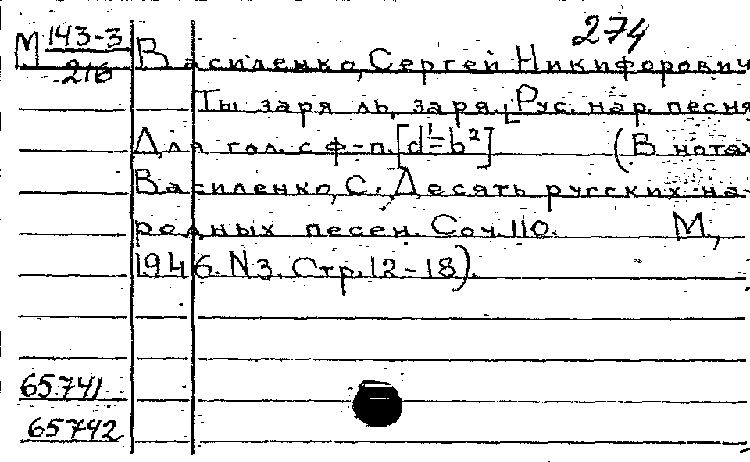 274
М 143-3
216
Василенко, Сергей Никифорович
Ты заря ль, заря. Рус. нар. песня
Для гол. с ф-п. [d¹=b²] (В нотах
Василенко, С. Десять русских на-
родных песен. Соч. 110. М.,
1946. N3. Стр. 12-18).
65741
65742